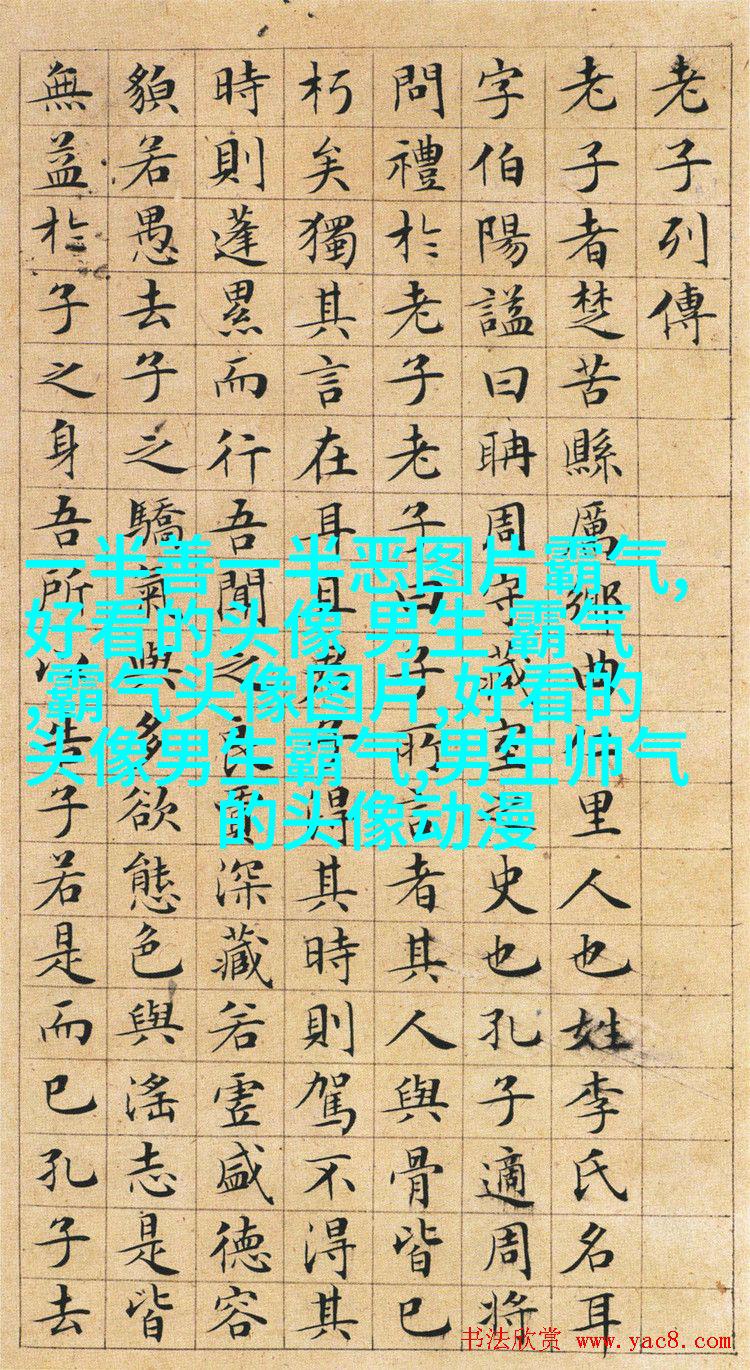 老子列傳
老子者楚苦縣厲鄉曲里人也姓李氏名耳
字伯陽諡曰聃周守藏室史也孔子適周將
問禮於老子老子曰子所言者其人與骨皆已
朽矣獨其言在耳且君子得其時則駕不得其
時則蓬累而行吾聞之良賈深藏若虛盛德容
貌若愚去子之驕氣與多欲態色與滛志是皆
無益於子之身吾所以告子若是而已孔子去
一半善一半恶图片霸气,
好看的头像 男生 霸气
,霸气头像图片,好看的
头像男生霸气,男生帅气
的头像动漫
书法欣赏 www.yac8.com